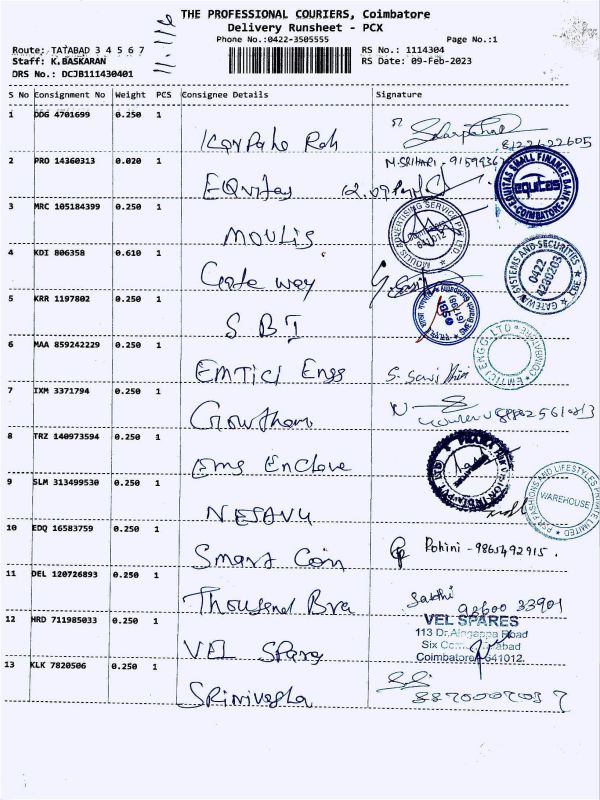 THE PROFESSIONAL COURIERS, Coimbatore
Delivery Runsheet - PCX
Phone No.:0422-3505555
Page No.:1
Route: TATABAD 3 4 5 6 7
Staff: K.BASKARAN
DRS No.: DCJB111430401
RS No.: 1114304
RS Date: 09-Feb-2023
S No Consignment No Weight PCS Consignee Details Signature
1 DDG 4701699 0.250 1
8122622605
2 PRO 14360313 0.020 1 M.SRIHARI
EQuitas
EQUITAS SMALL FINANCE BANK
equitas
COIMBATORE
3 MRC 105184399 0.250 1
MOULIS
MOULIS ADVERTISING SERVICE PVT LTD
641012
4 KDI 806358 0.610 1
Gate way
GATEWAY SYSTEMS AND SECURITIES
0422
4280203
CBE
5 KRR 1197802 0.250 1
SBI
SBI
6 MAA 859242229 0.250 1
EMTICI Engg
EMTICI ENGG. LTD
7 IXM 3371794 0.250 1
Gowtham
8 TRZ 140973594 0.250 1
Ems Enclave
9 SLM 313499530 0.250 1
NESAVU
PCP FASHIONS AND LIFESTYLES PRIVATE LIMITED
WAREHOUSE
10 EDQ 16583759 0.250 1
Smart Coin
Rohini - 9865492915.
11 DEL 120726893 0.250 1
Thousand Bra
Sakthi
98600 33901
12 HRD 711985033 0.250 1
VEL Spares
VEL SPARES
113 Dr.Alagappa Road
Six Corner, Tatabad
Coimbatore 641012.
13 KLK 7820506 0.250 1